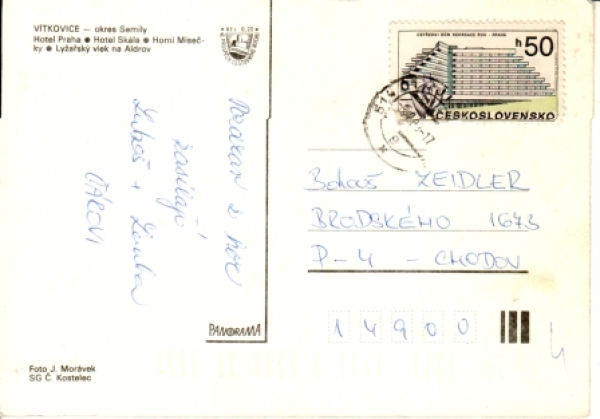 VÍTKOVICE — okres Semily
Hotel Praha ● Hotel Skála ● Horní Míseč-
ky ● Lyžařský vlek na Aldrov
Pozdrav z hor
zasílají
Luboš + Lenka
PANORAMA
Foto J. Morávek
SG Č. Kostelec
h 50
ČESKOSLOVENSKO
Bohouš ZEIDLER
BRODSKÉHO 1673
P-4 - CHODOV
14900